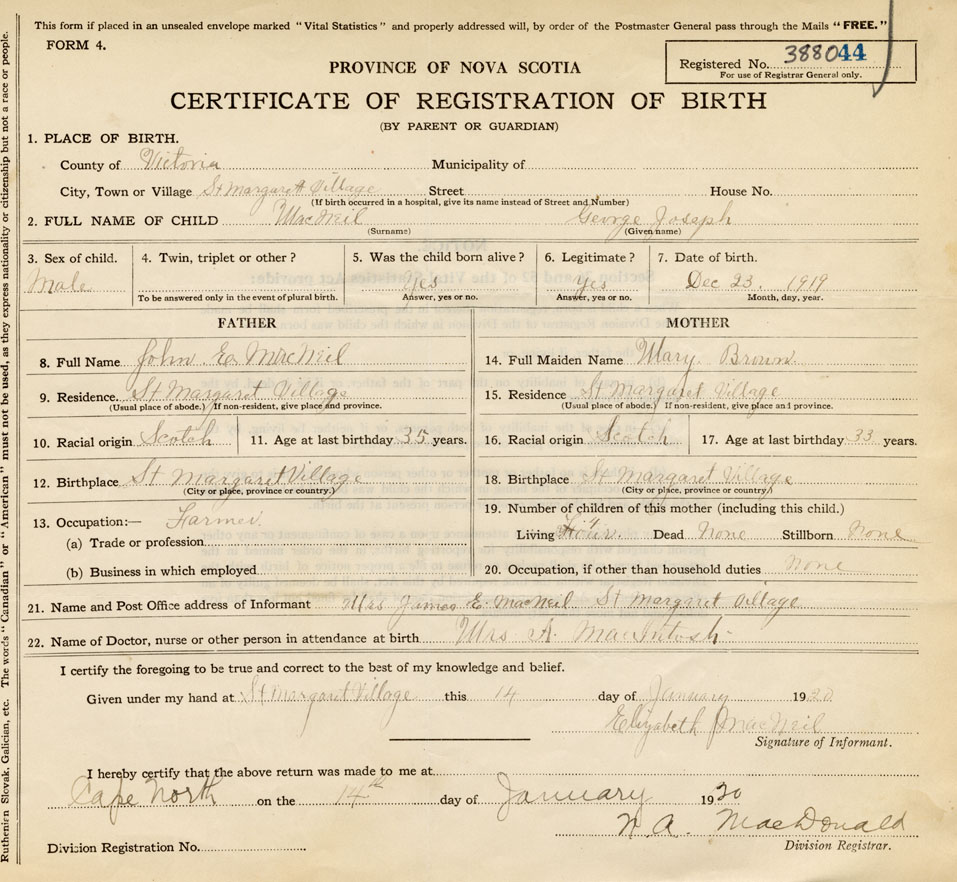 This form if placed in an unsealed envelope marked "Vital Statistics" and properly addressed will, by order of the Postmaster General pass through the Mails "FREE."
FORM 4.
Registered No. 388044
For use of Registrar General only.
PROVINCE OF NOVA SCOTIA
CERTIFICATE OF REGISTRATION OF BIRTH
(BY PARENT OR GUARDIAN)
1. PLACE OF BIRTH.
County of Victoria Municipality of
City, Town or Village St Margaret Village Street House No.
(If birth occurred in a hospital, give its name instead of Street and Number)
2. FULL NAME OF CHILD MacNeil George Joseph
(Surname) (Given name)
3. Sex of child. 4. Twin, triplet or other? 5. Was the child born alive? 6. Legitimate? 7. Date of birth.
Male Yes Yes Dec 23. 1919
To be answered only in the event of plural birth. Answer, yes or no. Answer, yes or no. Month, day, year.
FATHER
8. Full Name John E. MacNeil
9. Residence St Margaret Village
(Usual place of abode.) If non-resident, give place and province.
10. Racial origin Scotch 11. Age at last birthday 35 years.
12. Birthplace St Margaret Village
(City or place, province or country.)
13. Occupation:— Farmer
(a) Trade or profession
(b) Business in which employed
MOTHER
14. Full Maiden Name Mary Brown
15. Residence St Margaret Village
(Usual place of abode.) If non-resident, give place and province.
16. Racial origin Scotch 17. Age at last birthday 33 years.
18. Birthplace St Margaret Village
(City or place, province or country)
19. Number of children of this mother (including this child.)
Living Four Dead None Stillborn None
20. Occupation, if other than household duties None
21. Name and Post Office address of Informant Mrs James E. MacNeil St Margaret Village
22. Name of Doctor, nurse or other person in attendance at birth Mrs A. MacIntosh
I certify the foregoing to be true and correct to the best of my knowledge and belief.
Given under my hand at St Margaret Village this 14 day of January 1920
Elizabeth J MacNeil
Signature of Informant.
I hereby certify that the above return was made to me at
Cape North on the 14th day of January 1920
N. A. MacDonald
Division Registrar.
Division Registration No.
Ruthenien Slovak. Galician, etc. The words "Canadian" or "American" must not be used, as they express nationality or citizenship but not a race or people.